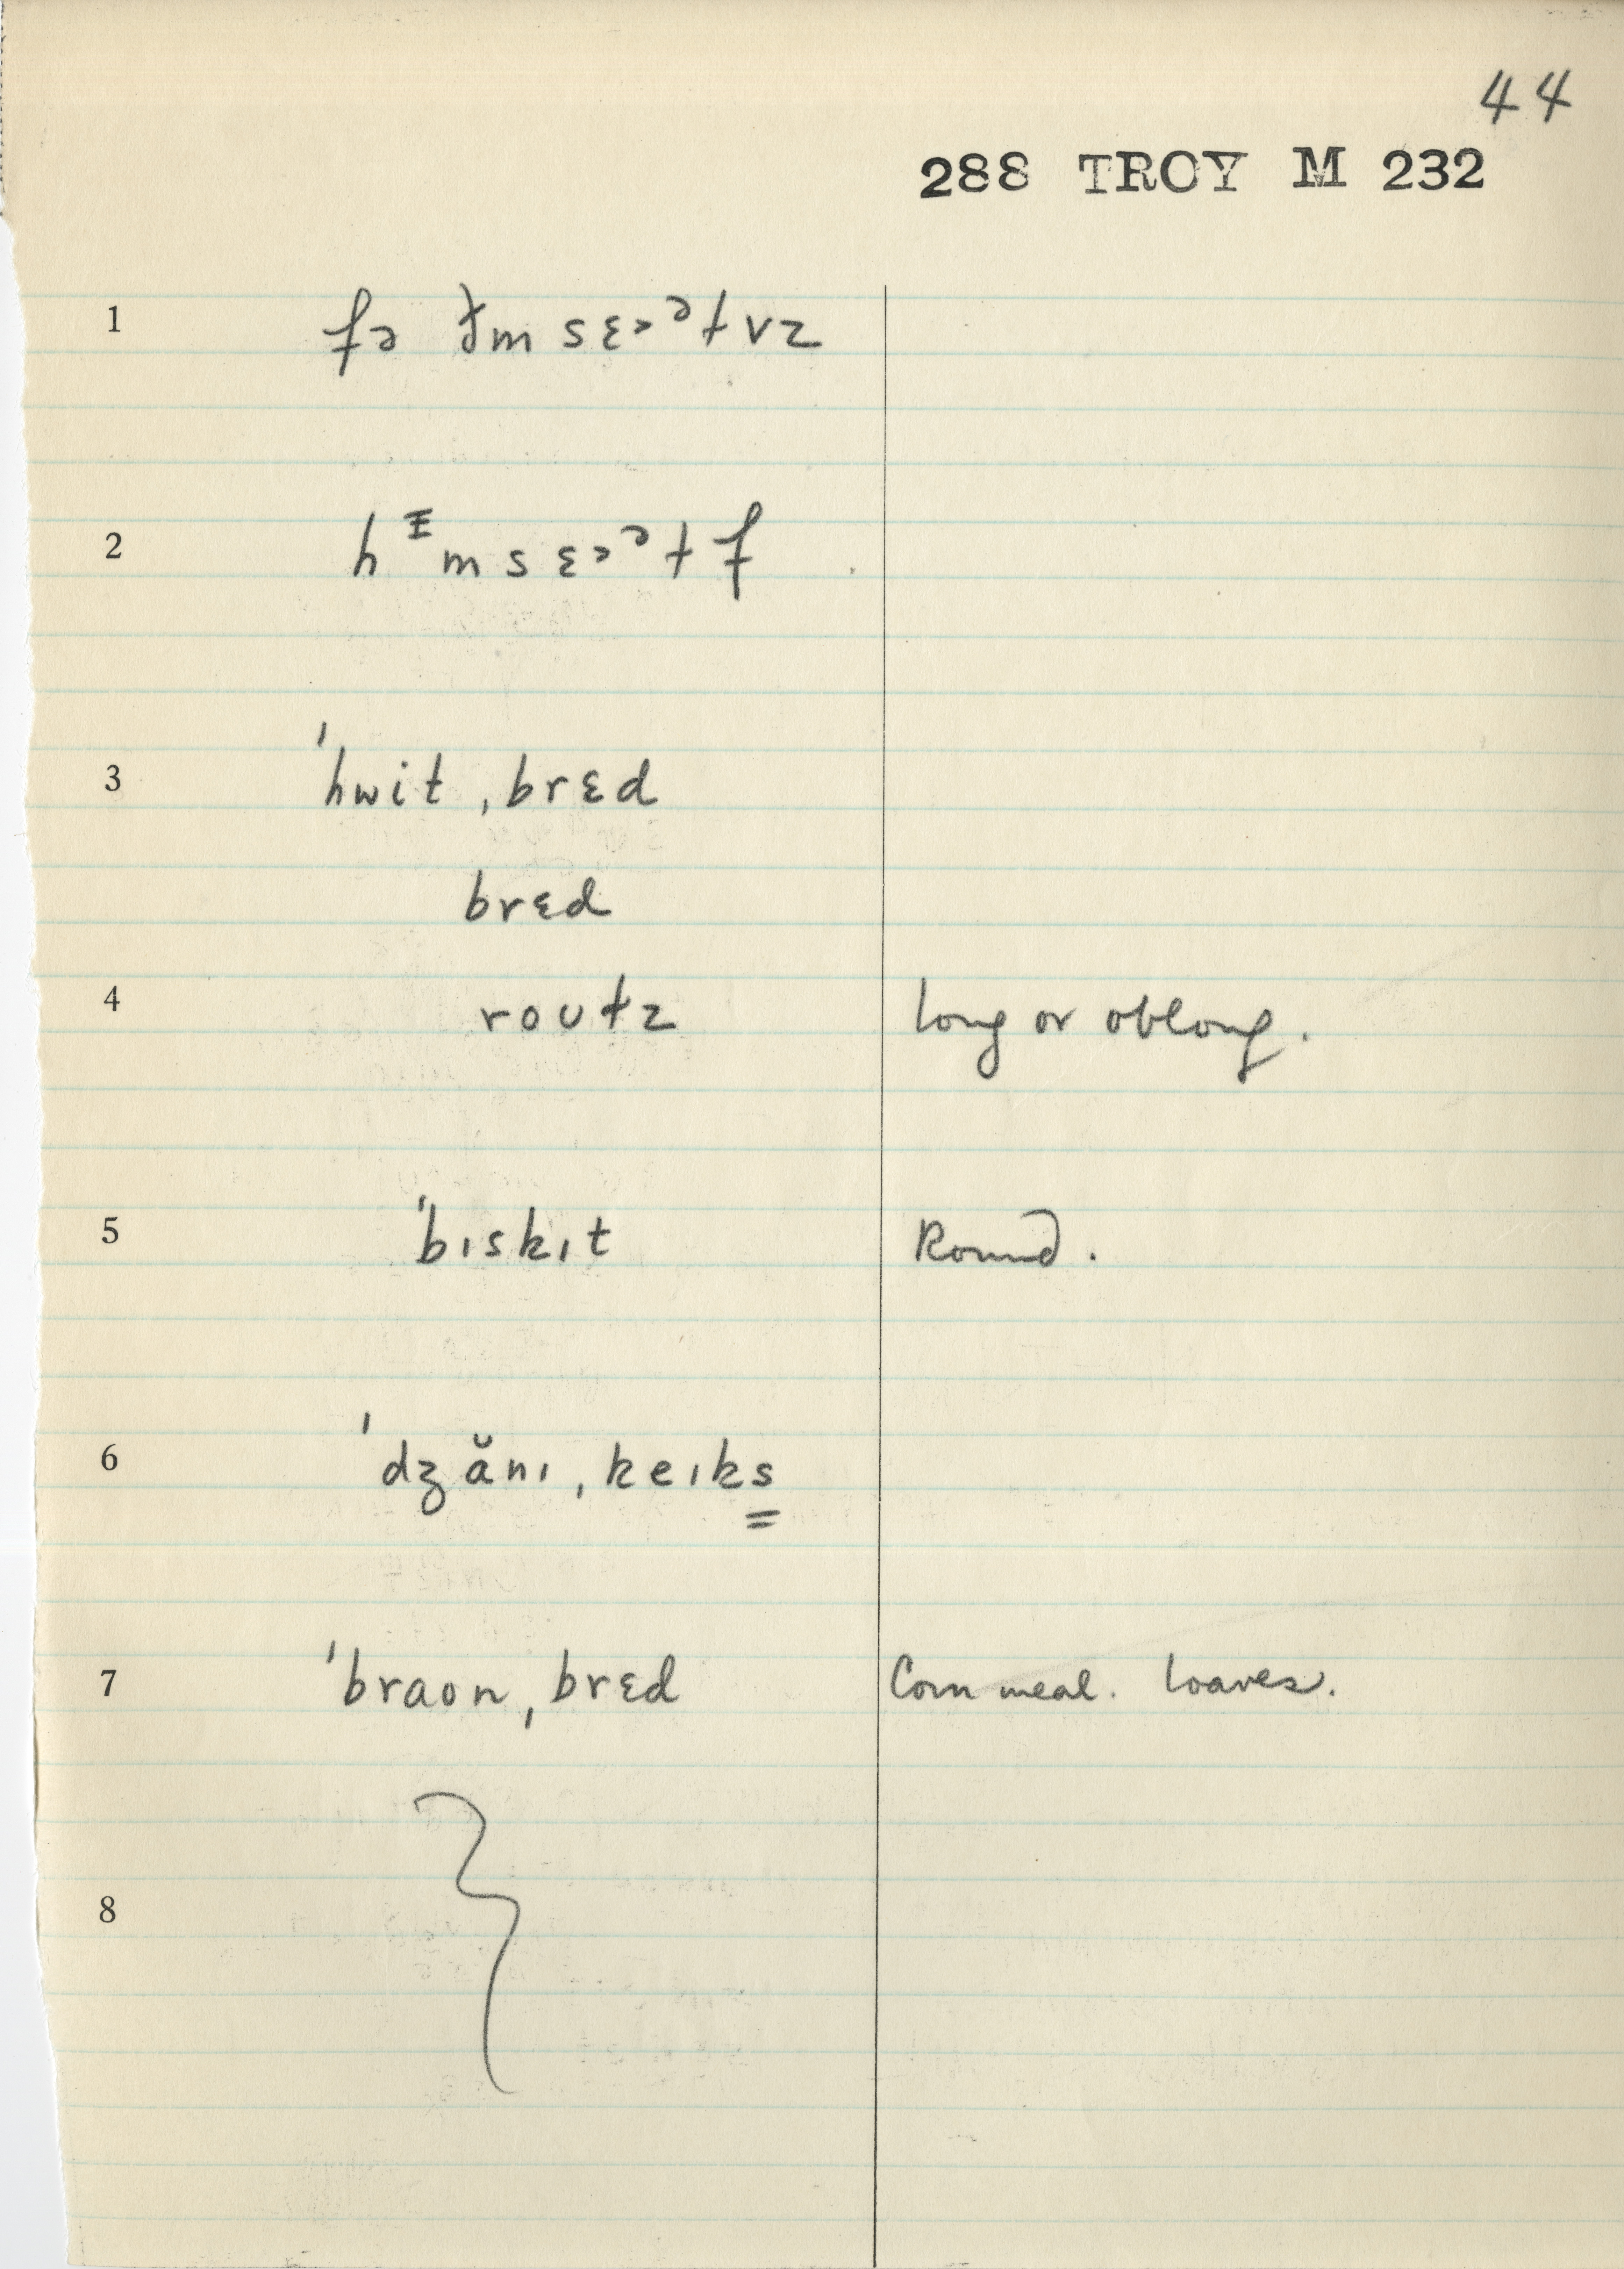 44
288 TROY M 232
1 fə ðm sɛ˃ᵊɫvz
2 hᵻm sɛ˃ᵊɫf
3 ˈhwit ˌbrɛd
brɛd
4 roʊɫz long or oblong.
5 ˈbɪskɪt Round.
6 ˈdʒănɪ ˌkeɪks
7 ˈbraon ˌbrɛd Corn meal. loaves.
8